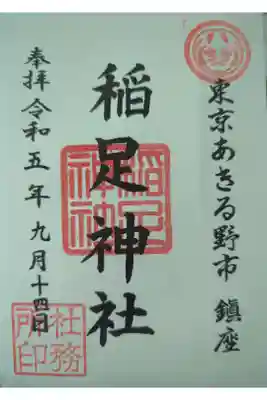 東京あきる野市 鎮座
稲足神社
稲足神社
奉拝 令和五年九月十四日
社務所印